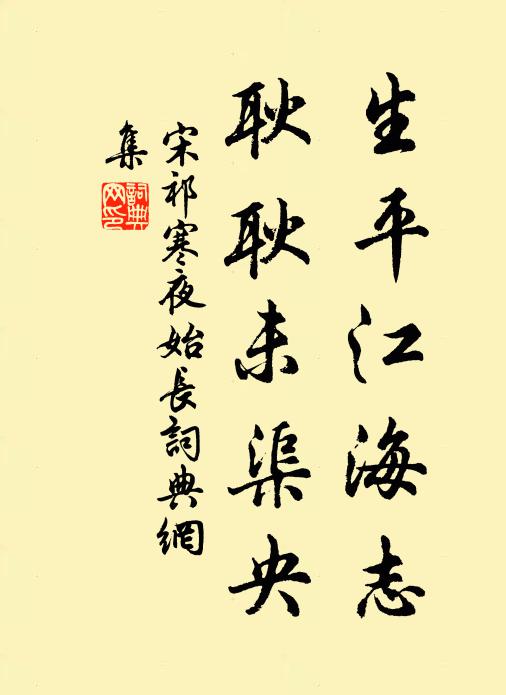 生平江海志
耿耿未渠央
宋祁寒夜始長詞典網
集
詞典
网印